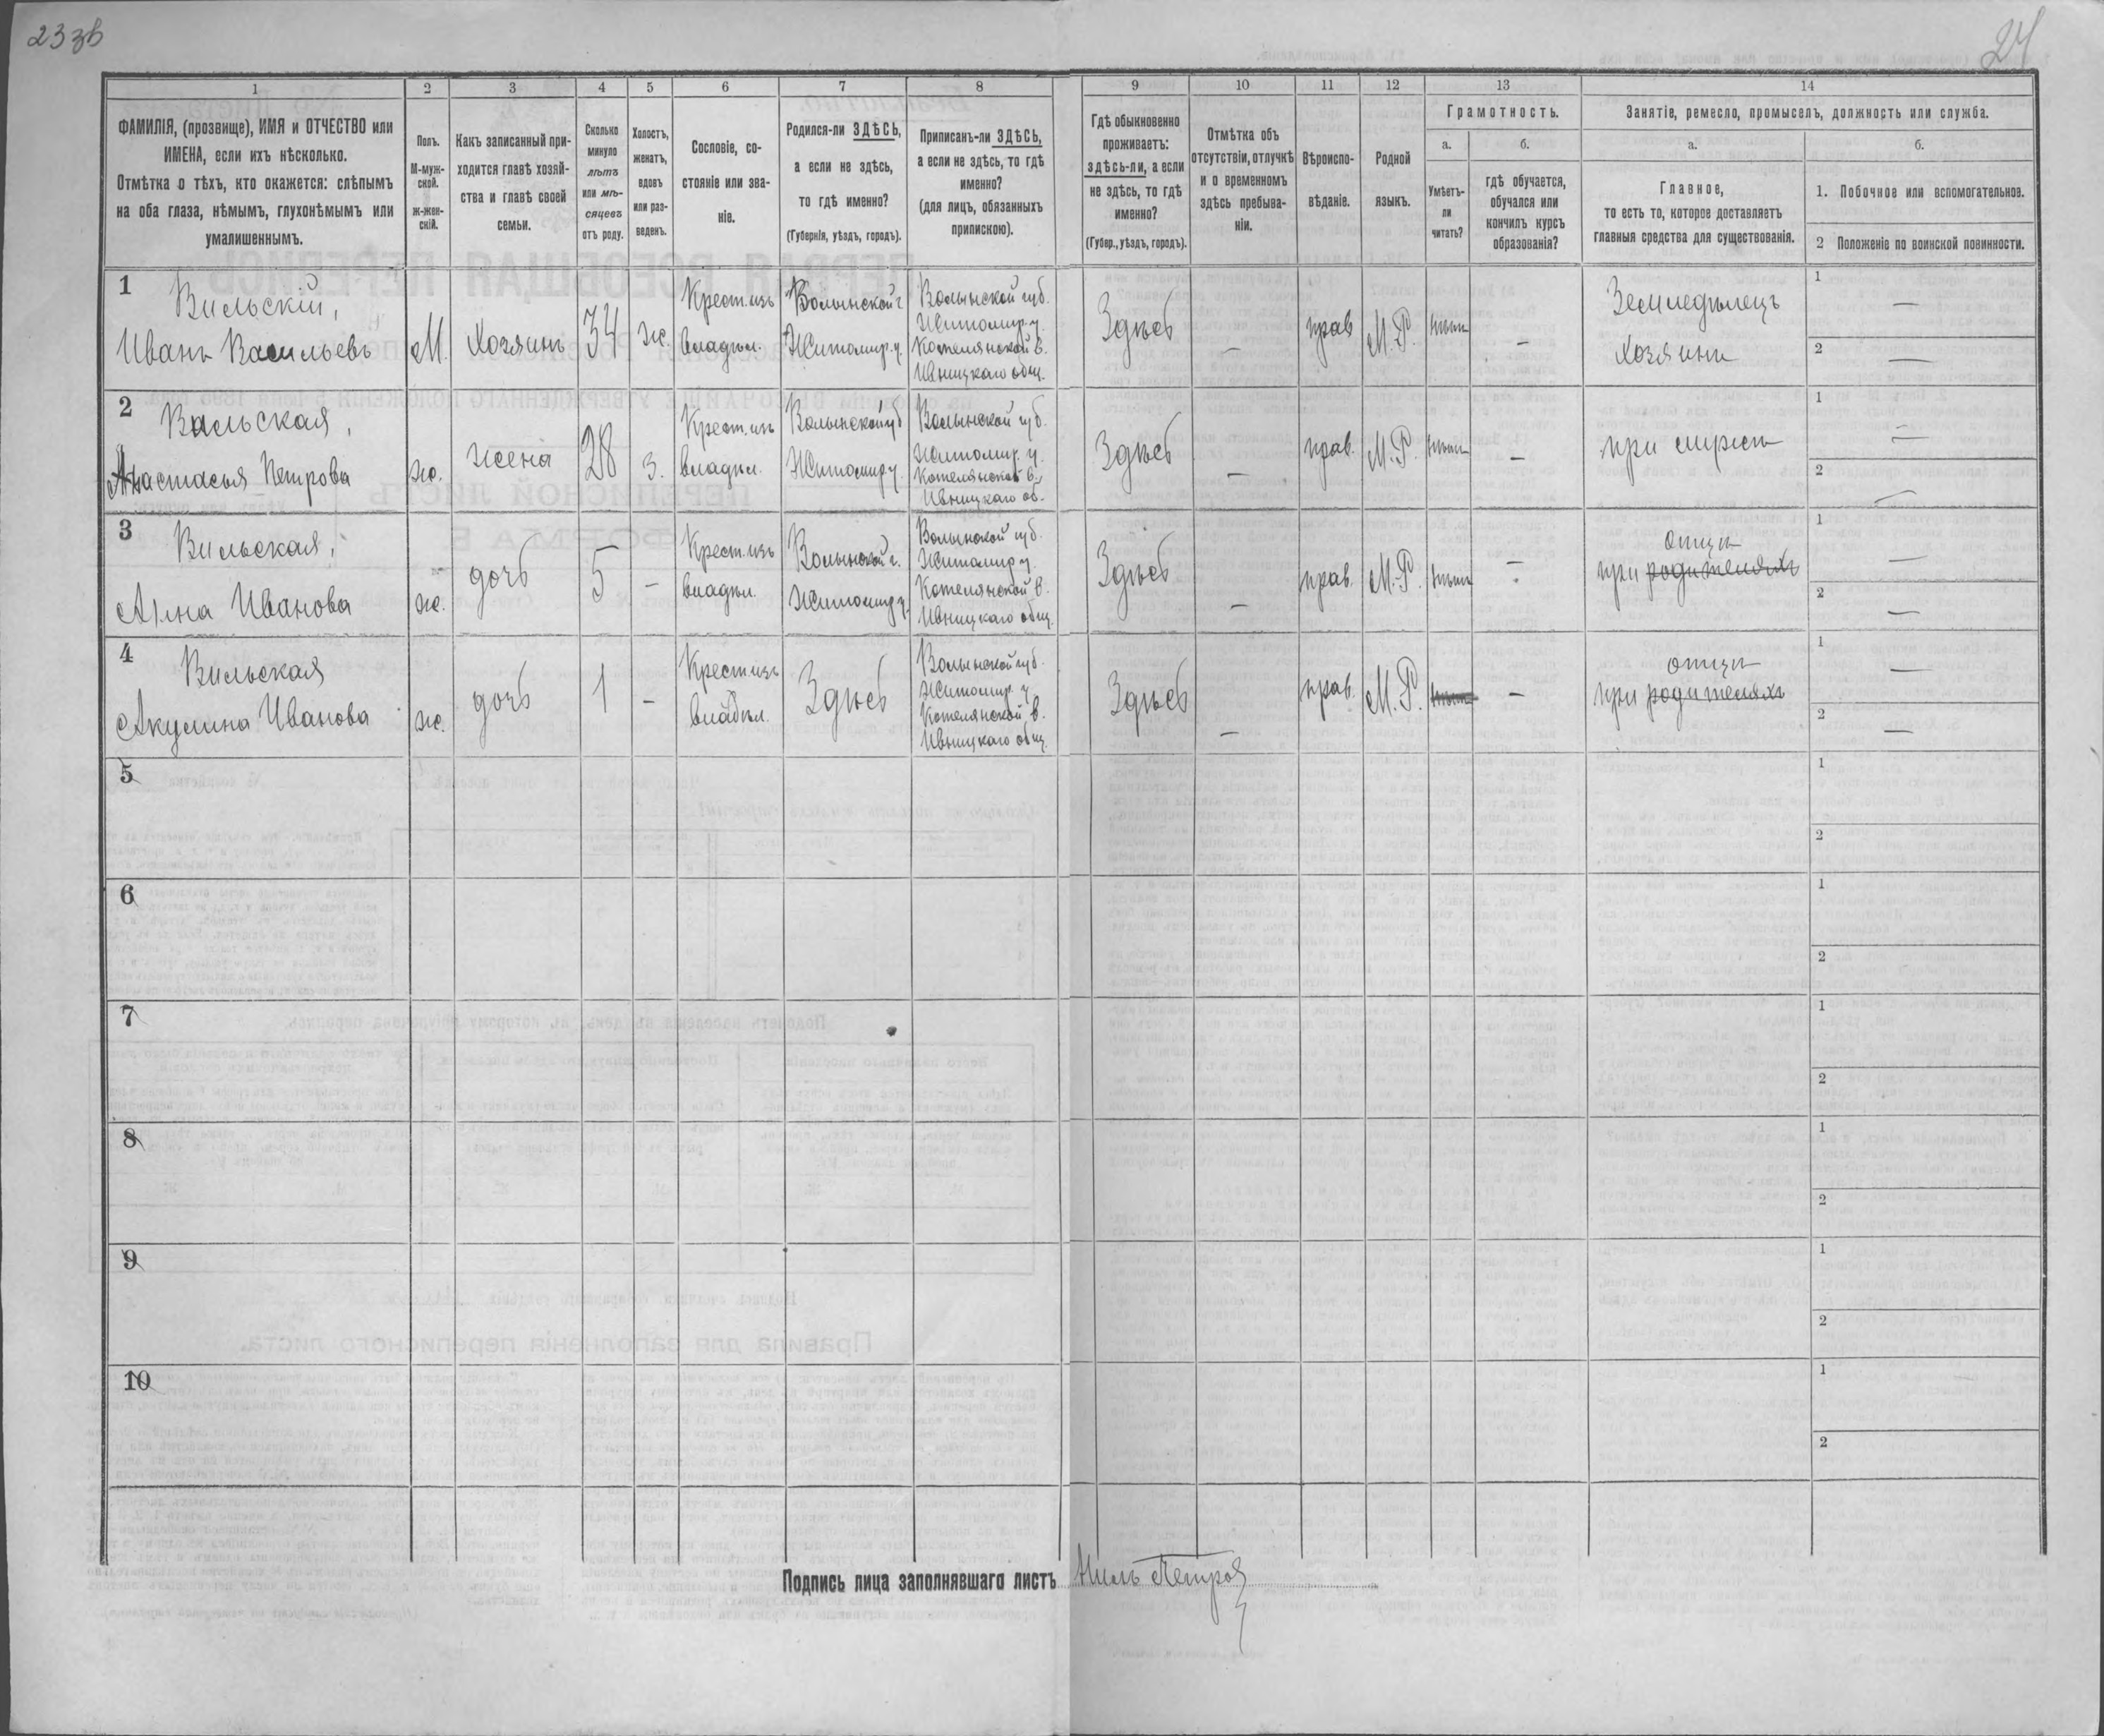 23 зв
24
1
2
3
4
5
6
7
8
9
10
11
12
13
14
ФАМИЛІЯ, (прозвище), ИМЯ и ОТЧЕСТВО или
ИМЕНА, если ихъ нѣсколько.
Отмѣтка о тѣхъ, кто окажется: слѣпымъ
на оба глаза, нѣмымъ, глухонѣмымъ или
умалишеннымъ.
Полъ.
М-муж-
ской.
ж-жен-
скій.
Какъ записанный при-
ходится главѣ хозяй-
ства и главѣ своей
семьи.
Сколько
минуло
лѣтъ
или мѣ-
сяцевъ
отъ роду.
Холостъ,
женатъ,
вдовъ
или раз-
веденъ.
Сословіе, со-
стояніе или зва-
ніе.
Родился-ли ЗДѢСЬ,
а если не здѣсь,
то гдѣ именно?
(Губернія, уѣздъ, городъ).
Приписанъ-ли ЗДѢСЬ,
а если не здѣсь, то гдѣ
именно?
(для лицъ, обязанныхъ
припискою).
Гдѣ обыкновенно
проживаетъ:
здѣсь-ли, а если
не здѣсь, то гдѣ
именно?
(Губер., уѣздъ, городъ).
Отмѣтка объ
отсутствіи, отлучкѣ
и о временномъ
здѣсь пребыва-
ніи.
Вѣроиспо-
вѣданіе.
Родной
языкъ.
Грамотность.
а.
Умѣетъ-
ли
читать?
б.
гдѣ обучается,
обучался или
кончилъ курсъ
образованія?
Занятіе, ремесло, промыселъ, должность или служба.
а.
Главное,
то есть то, которое доставляетъ
главныя средства для существованія.
б.
1. Побочное или вспомогательное.
2 Положеніе по воинской повинности.
1
Вильскій,
Иванъ Васильевъ
М.
Хозяинъ
34
ж.
Крест. изъ
владѣл.
Волынской г
Житомир. у.
Волынской губ.
Житомир. у.
Котелянской в.
Ивницкаго общ.
Здѣсь
—
прав
М. Р.
нѣтъ
—
Земледѣлецъ
хозяинъ
1
—
2
—
2
Вильская,
Анастасья Петрова
ж.
жена
28
з.
Крест. изъ
владѣл.
Волынской губ
Житомир у.
Волынской губ.
Житомир. у.
Котелянской в.
Ивницкаго об.
Здѣсь
—
прав.
М. Р.
нѣтъ
—
при мужѣ
1
—
2
—
3
Вильская,
Анна Иванова
ж.
дочь
5
—
Крест. изъ
владѣл.
Волынской г.
Житомир у.
Волынской губ.
Житомир у.
Котелянской в.
Ивницкаго общ.
Здѣсь
—
прав.
М. Р.
нѣтъ
—
отцѣ
при родителяхъ
1
—
2
—
4
Вильская
Акулина Иванова
ж.
дочь
1
—
Крест. изъ
владѣл.
Здѣсь
Волынской губ.
Житомир. у
Котелянской в.
Ивницкаго общ.
Здѣсь
—
прав.
М. Р.
нѣтъ
—
отцѣ
при родителяхъ
1
—
2
—
5
1
2
6
1
2
7
1
2
8
1
2
9
1
2
10
1
2
Подпись лица заполнявшаго листъ Нилъ Петров